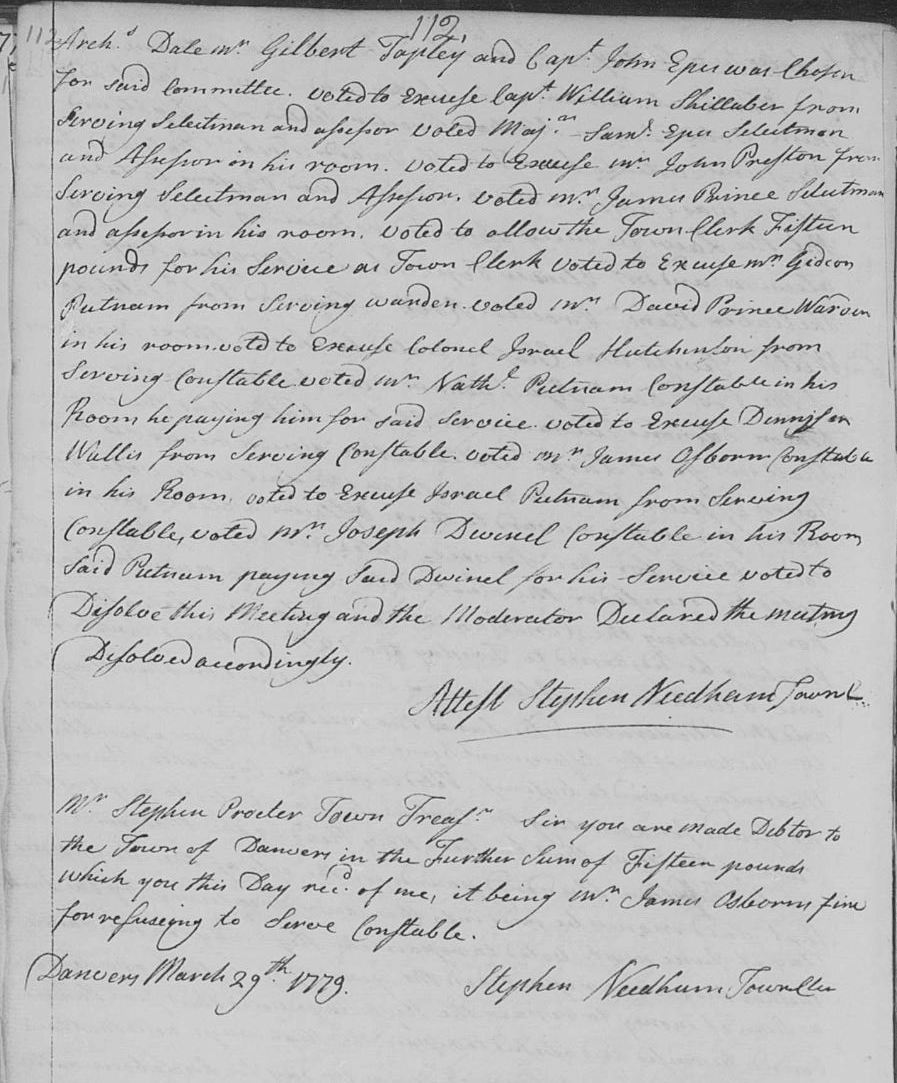 112.
7 112
Arch.d Dale mr Gilbert Tapley and Capt. John Epes was Chosen
for said Committee. voted to Excuse Capt. William Shillaber from
Serving Selectman and assessor voted Majr. Saml. Epes Selectman
and Assessor in his room. voted to Excuse mr John Preston from
Serving Selectman and Assessor. voted mr James Prince Selectman
and assessor in his room. voted to allow the Town Clerk Fifteen
pounds for his Service as Town Clerk voted to Excuse mr Gideon
Putnam from Serving warden. voted mr David Prince Warden
in his room. voted to Excuse Colonel Israel Hutchinson from
Serving Constable. voted mr Nathl. Putnam Constable in his
Room he paying him for said Service. voted to Excuse Dennison
Wallis from Serving Constable. voted mr James Osborn Constable
in his Room. voted to Excuse Israel Putnam from Serving
Constable, voted mr Joseph Dwinel Constable in his Room
Said Putnam paying Said Dwinel for his Service voted to
Disolve this Meeting and the Moderator Declared the meeting
Disolved accordingly.
Attest Stephen Needham Town C
Mr Stephen Procter Town Treasr Sir you are made Debtor to
the Town of Danvers in the Further Sum of Fifteen pounds
which you this Day recd. of me, it being mr James Osborns fine
for refuseing to Serve Constable.
Danvers March 29th. 1779. Stephen Needham Town Cler